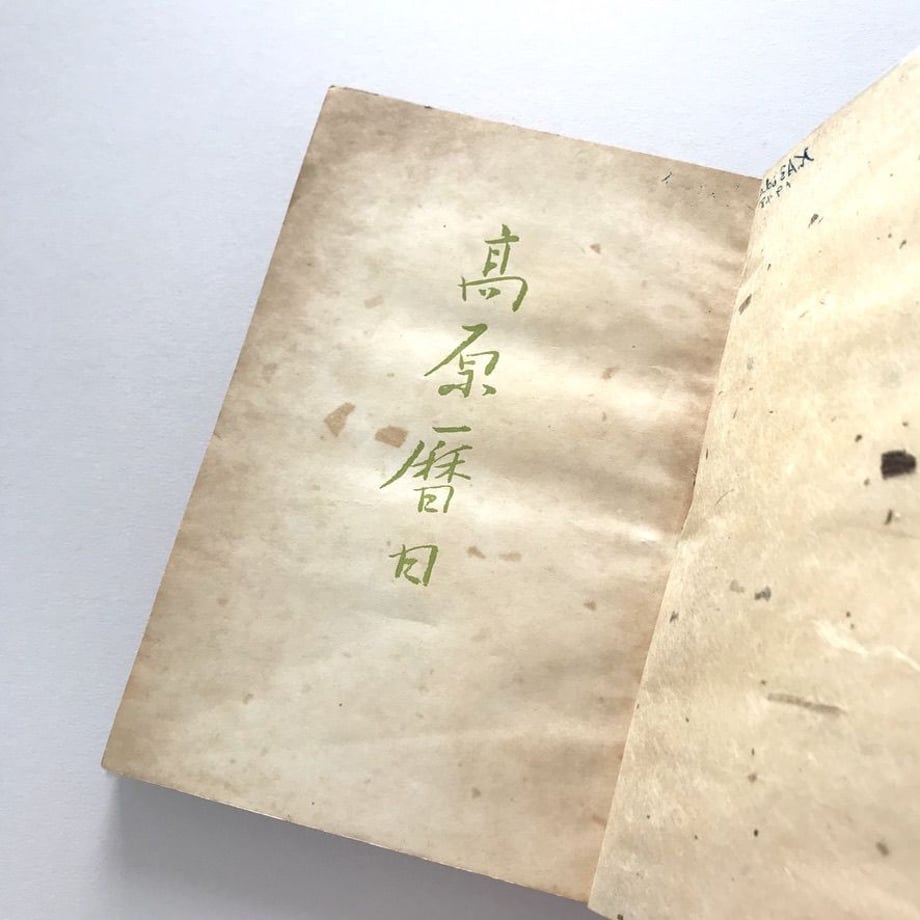 高原暦日